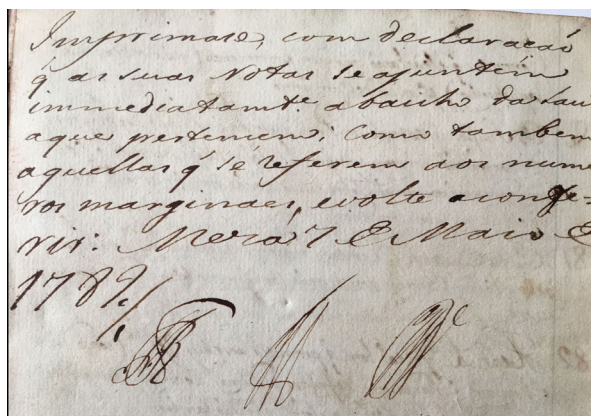 Imprimase, com declaraçaõ
q̃ as suas Notas se ajuntem
immediatamte. abaicho da Lau
aque pertencem; como tambem
aquellas q̃ se referem aos nume
ros marginaes, evolte aconfe=
rir: Meza 7 de Maio de
1789